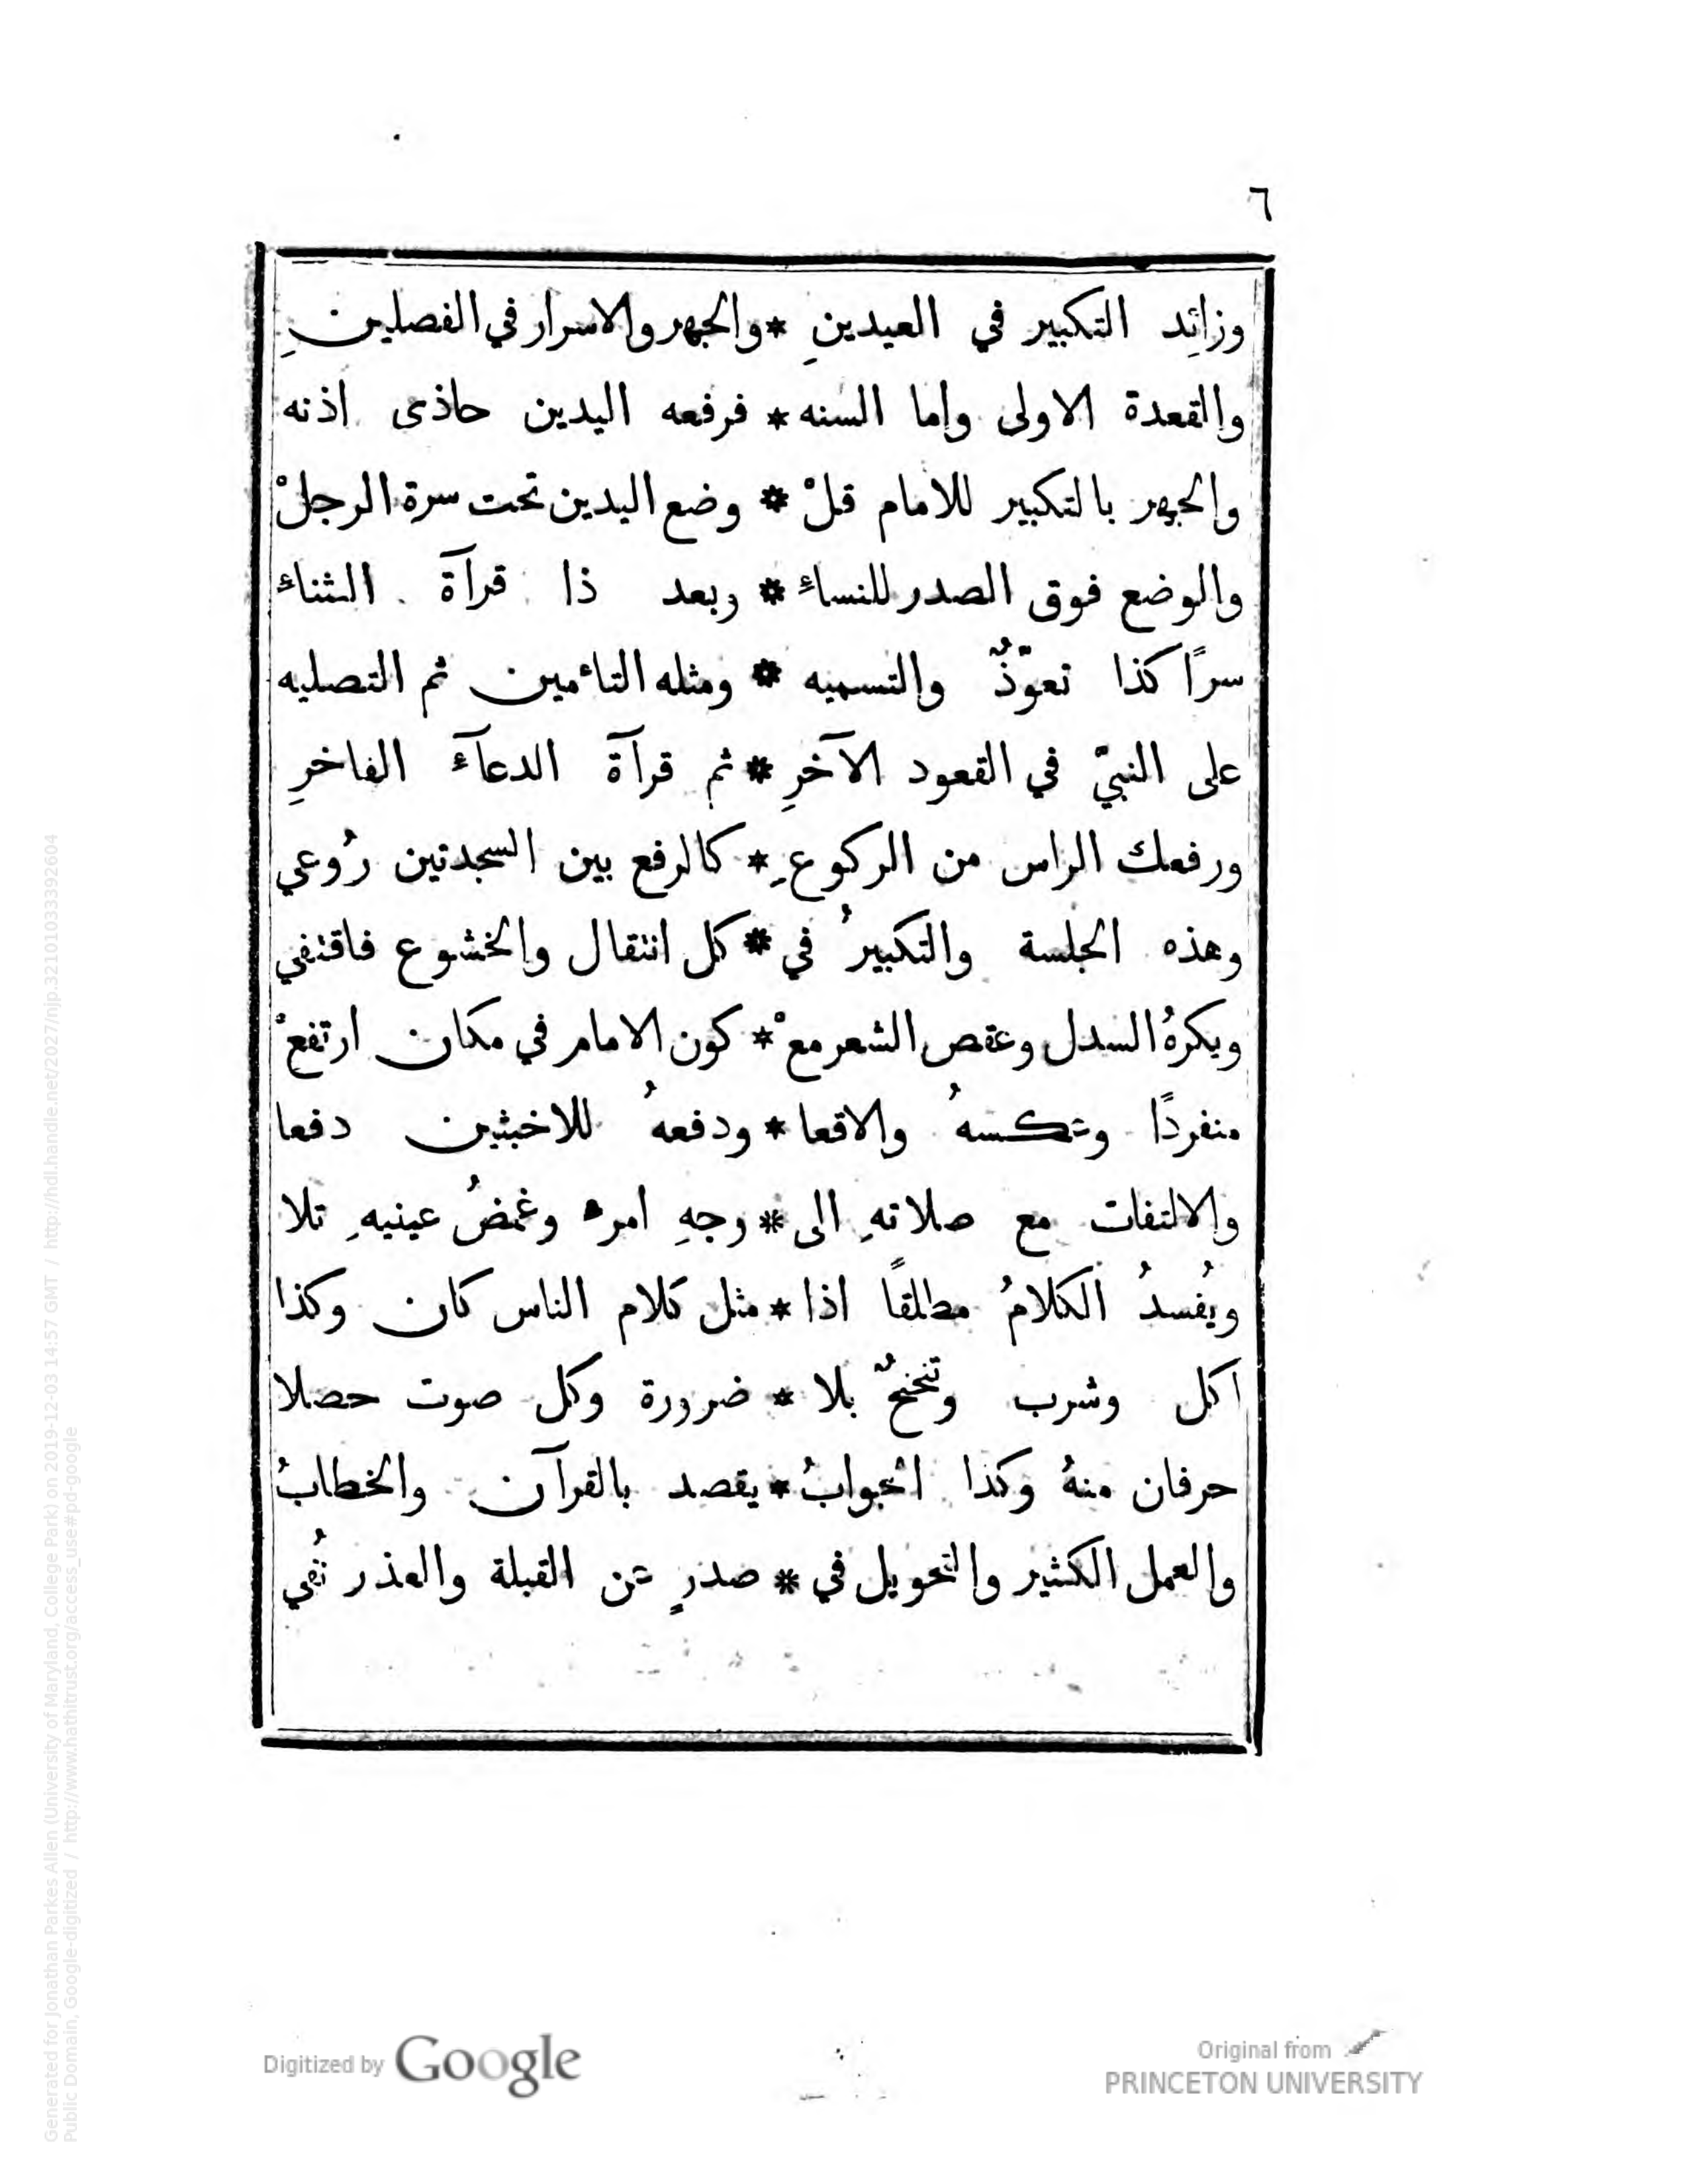 ٦
وزائِد التكبير في العيدينِ * والجهر والاسرار في الفصلينِ
والقعدة الاولى واما السنه * فرفعه اليدين حاذى اذنه
والجهر بالتكبير للامام قلْ * وضع اليدين تحت سرة الرجلْ
والوضع فوق الصدر للنساءِ * وبعد ذا قرآة الثناءِ
سرًا كذا تعوّذٌ والتسميه * ومثله التأمين ثم التصليه
على النبيّ في القعود الآخرِ * ثم قرآة الدعآءِ الفاخرِ
ورفعك الراس من الركوعِ * كالرفع بين السجدتين رُوعي
وهذه الجلسة والتكبيرُ في * كل انتقال والخشوع فاقتفي
ويكرهُ السدل وعقص الشعر معْ * كون الامام في مكان ارتفعْ
منفردًا وعكسهُ والاقعا * ودفعهُ للاخبثين دفعا
والالتفات مع صلاتهِ الى * وجهِ امرء وغمضُ عينيهِ تلا
ويُفسدُ الكلامُ مطلقًا اذا * مثل كلام الناس كان وكذا
اكل وشرب وتنحنحٌ بلا * ضرورة وكل صوت حصلا
حرفان منهُ وكذا الجوابُ * يقصد بالقرآن والخطابُ
والعمل الكثير والتحويل في * صدرٍ عن القبلة والعذر نُفي
Digitized by Google
Original from PRINCETON UNIVERSITY
Generated for Jonathan Parkes Allen (University of Maryland, College Park) on 2019-12-03 14:57 GMT / http://hdl.handle.net/2027/njp.32101033392604
Public Domain, Google-digitized / http://www.hathitrust.org/access_use#pd-google